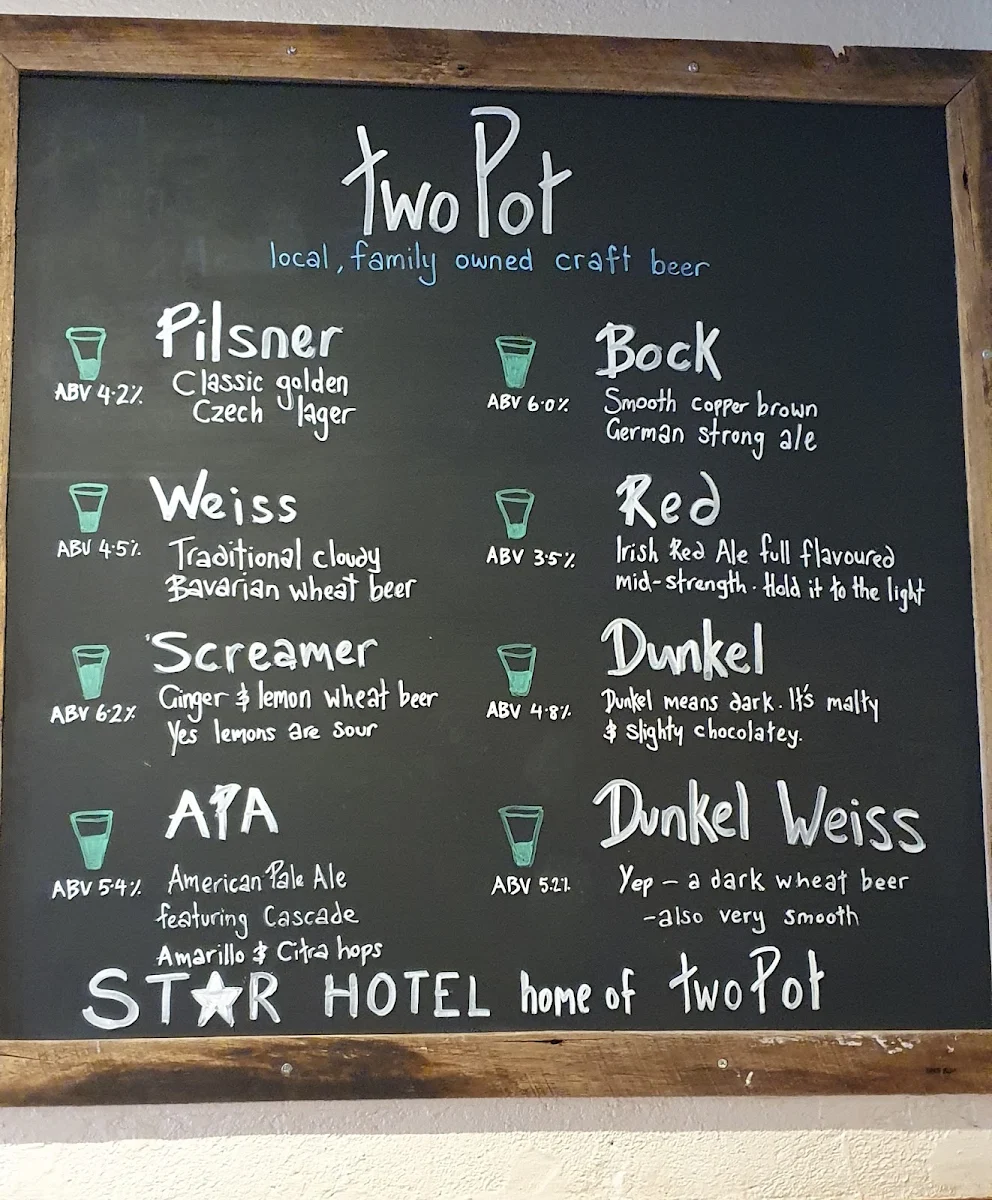 two Pot
local, family owned craft beer
Pilsner
ABV 4.2%
Classic golden
Czech lager
Weiss
ABV 4.5%
Traditional cloudy
Bavarian wheat beer
Screamer
ABV 6.2%
Ginger & lemon wheat beer
Yes lemons are sour
APA
ABV 5.4%
American Pale Ale
featuring Cascade
Amarillo & Citra hops
Bock
ABV 6.0%
Smooth copper brown
German strong ale
Red
ABV 3.5%
Irish Red Ale full flavoured
mid-strength. Hold it to the light
Dunkel
ABV 4.8%
Dunkel means dark. It's malty
& slighty chocolatey.
Dunkel Weiss
ABV 5.2%
Yep - a dark wheat beer
-also very smooth
STAR HOTEL home of twoPot